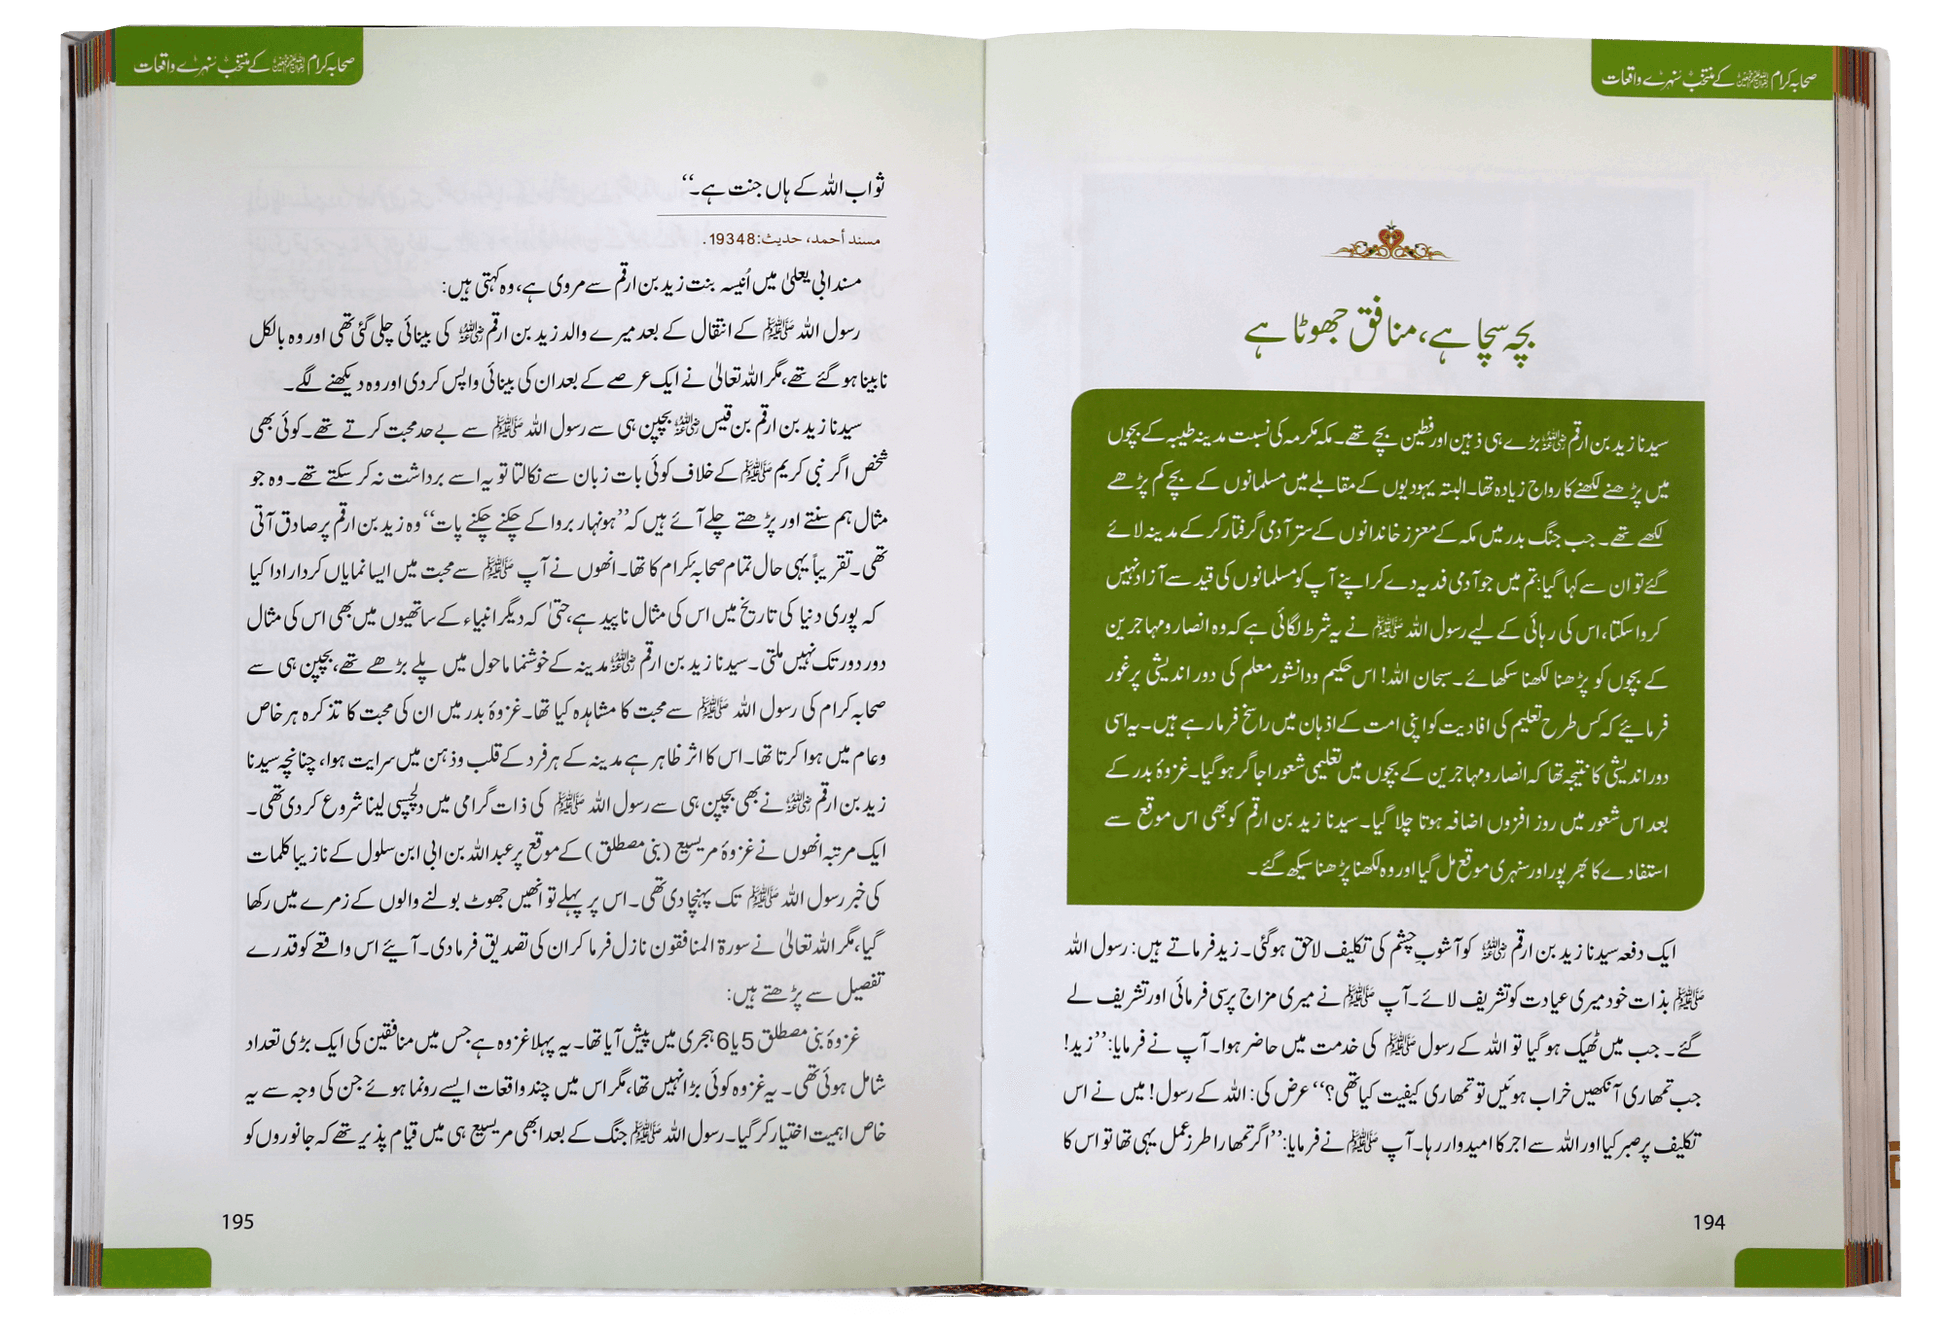 صحابہ کرام رضی اللہ عنہم کے منتخب سنہرے واقعات
بچہ سچا ہے، منافق جھوٹا ہے
سیدنا زید بن ارقم ؓ بڑے ہی ذہین اور فطین بچے تھے۔ مکہ مکرمہ کی نسبت مدینہ طیبہ کے بچوں
میں پڑھنے لکھنے کا رواج زیادہ تھا۔ البتہ یہودیوں کے مقابلے میں مسلمانوں کے بچے کم پڑھے
لکھے تھے۔ جب جنگ بدر میں مکہ کے معزز خاندانوں کے ستر آدمی گرفتار کر کے مدینہ لائے
گئے تو ان سے کہا گیا: تم میں جو آدمی فدیہ دے کر اپنے آپ کو مسلمانوں کی قید سے آزاد نہیں
کروا سکتا، اس کی رہائی کے لیے رسول اللہ ﷺ نے یہ شرط لگائی ہے کہ وہ انصار و مہاجرین
کے بچوں کو پڑھنا لکھنا سکھائے۔ سبحان اللہ! اس حکیم و دانشور معلم کی دور اندیشی پر غور
فرمائیے کہ کس طرح تعلیم کی افادیت کو اپنی امت کے اذہان میں راسخ فرما رہے ہیں۔ یہ اسی
دور اندیشی کا نتیجہ تھا کہ انصار و مہاجرین کے بچوں میں تعلیمی شعور اجاگر ہو گیا۔ غزوۂ بدر کے
بعد اس شعور میں روز افزوں اضافہ ہوتا چلا گیا۔ سیدنا زید بن ارقم کو بھی اس موقع سے
استفادے کا بھرپور اور سنہری موقع مل گیا اور وہ لکھنا پڑھنا سیکھ گئے۔
ایک دفعہ سیدنا زید بن ارقم ؓ کو آشوبِ چشم کی تکلیف لاحق ہو گئی۔ زید فرماتے ہیں: رسول اللہ
ﷺ بذات خود میری عیادت کو تشریف لائے۔ آپ ﷺ نے میری مزاج پرسی فرمائی اور تشریف لے
گئے۔ جب میں ٹھیک ہو گیا تو اللہ کے رسول ﷺ کی خدمت میں حاضر ہوا۔ آپ نے فرمایا: ’’زید!
جب تمھاری آنکھیں خراب ہوئیں تو تمھاری کیفیت کیا تھی؟‘‘ عرض کی: اللہ کے رسول! میں نے اس
تکلیف پر صبر کیا اور اللہ سے اجر کا امیدوار رہا۔ آپ ﷺ نے فرمایا: ’’اگر تمھارا طرز عمل یہی تھا تو اس کا
194
صحابہ کرام رضی اللہ عنہم کے منتخب سنہرے واقعات
ثواب اللہ کے ہاں جنت ہے۔‘‘
مسند أحمد، حدیث: 19348.
مسند ابی یعلیٰ میں اُنیسہ بنت زید بن ارقم سے مروی ہے، وہ کہتی ہیں:
رسول اللہ ﷺ کے انتقال کے بعد میرے والد زید بن ارقم ؓ کی بینائی چلی گئی تھی اور وہ بالکل
نابینا ہو گئے تھے، مگر اللہ تعالیٰ نے ایک عرصے کے بعد ان کی بینائی واپس کر دی اور وہ دیکھنے لگے۔
سیدنا زید بن ارقم بن قیس ؓ بچپن ہی سے رسول اللہ ﷺ سے بے حد محبت کرتے تھے۔ کوئی بھی
شخص اگر نبی کریم ﷺ کے خلاف کوئی بات زبان سے نکالتا تو یہ اسے برداشت نہ کر سکتے تھے۔ وہ جو
مثال ہم سنتے اور پڑھتے چلے آئے ہیں کہ ’’ہونہار بروا کے چکنے چکنے پات‘‘ وہ زید بن ارقم پر صادق آتی
تھی۔ تقریباً یہی حال تمام صحابہ کرام کا تھا۔ انھوں نے آپ ﷺ سے محبت میں ایسا نمایاں کردار ادا کیا
کہ پوری دنیا کی تاریخ میں اس کی مثال ناپید ہے، حتیٰ کہ دیگر انبیاء کے ساتھیوں میں بھی اس کی مثال
دور دور تک نہیں ملتی۔ سیدنا زید بن ارقم ؓ مدینہ کے خوشنما ماحول میں پلے بڑھے تھے، بچپن ہی سے
صحابہ کرام کی رسول اللہ ﷺ سے محبت کا مشاہدہ کیا تھا۔ غزوۂ بدر میں ان کی محبت کا تذکرہ ہر خاص
و عام میں ہوا کرتا تھا۔ اس کا اثر ظاہر ہے مدینہ کے ہر فرد کے قلب و ذہن میں سرایت ہوا، چنانچہ سیدنا
زید بن ارقم ؓ نے بھی بچپن ہی سے رسول اللہ ﷺ کی ذات گرامی میں دلچسپی لینا شروع کر دی تھی۔
ایک مرتبہ انھوں نے غزوۂ مریسیع (بنی مصطلق) کے موقع پر عبداللہ بن ابی ابن سلول کے نازیبا کلمات
کی خبر رسول اللہ ﷺ تک پہنچا دی تھی۔ اس پر پہلے تو انھیں جھوٹ بولنے والوں کے زمرے میں رکھا
گیا، مگر اللہ تعالیٰ نے سورۃ المنافقون نازل فرما کر ان کی تصدیق فرما دی۔ آئیے اس واقعے کو قدرے
تفصیل سے پڑھتے ہیں:
غزوۂ بنی مصطلق 5 یا 6 ہجری میں پیش آیا تھا۔ یہ پہلا غزوہ ہے جس میں منافقین کی ایک بڑی تعداد
شامل ہوئی تھی۔ یہ غزوہ کوئی بڑا نہیں تھا، مگر اس میں چند واقعات ایسے رونما ہوئے جن کی وجہ سے یہ
خاص اہمیت اختیار کر گیا۔ رسول اللہ ﷺ جنگ کے بعد ابھی مریسیع ہی میں قیام پذیر تھے کہ جانوروں کو
195